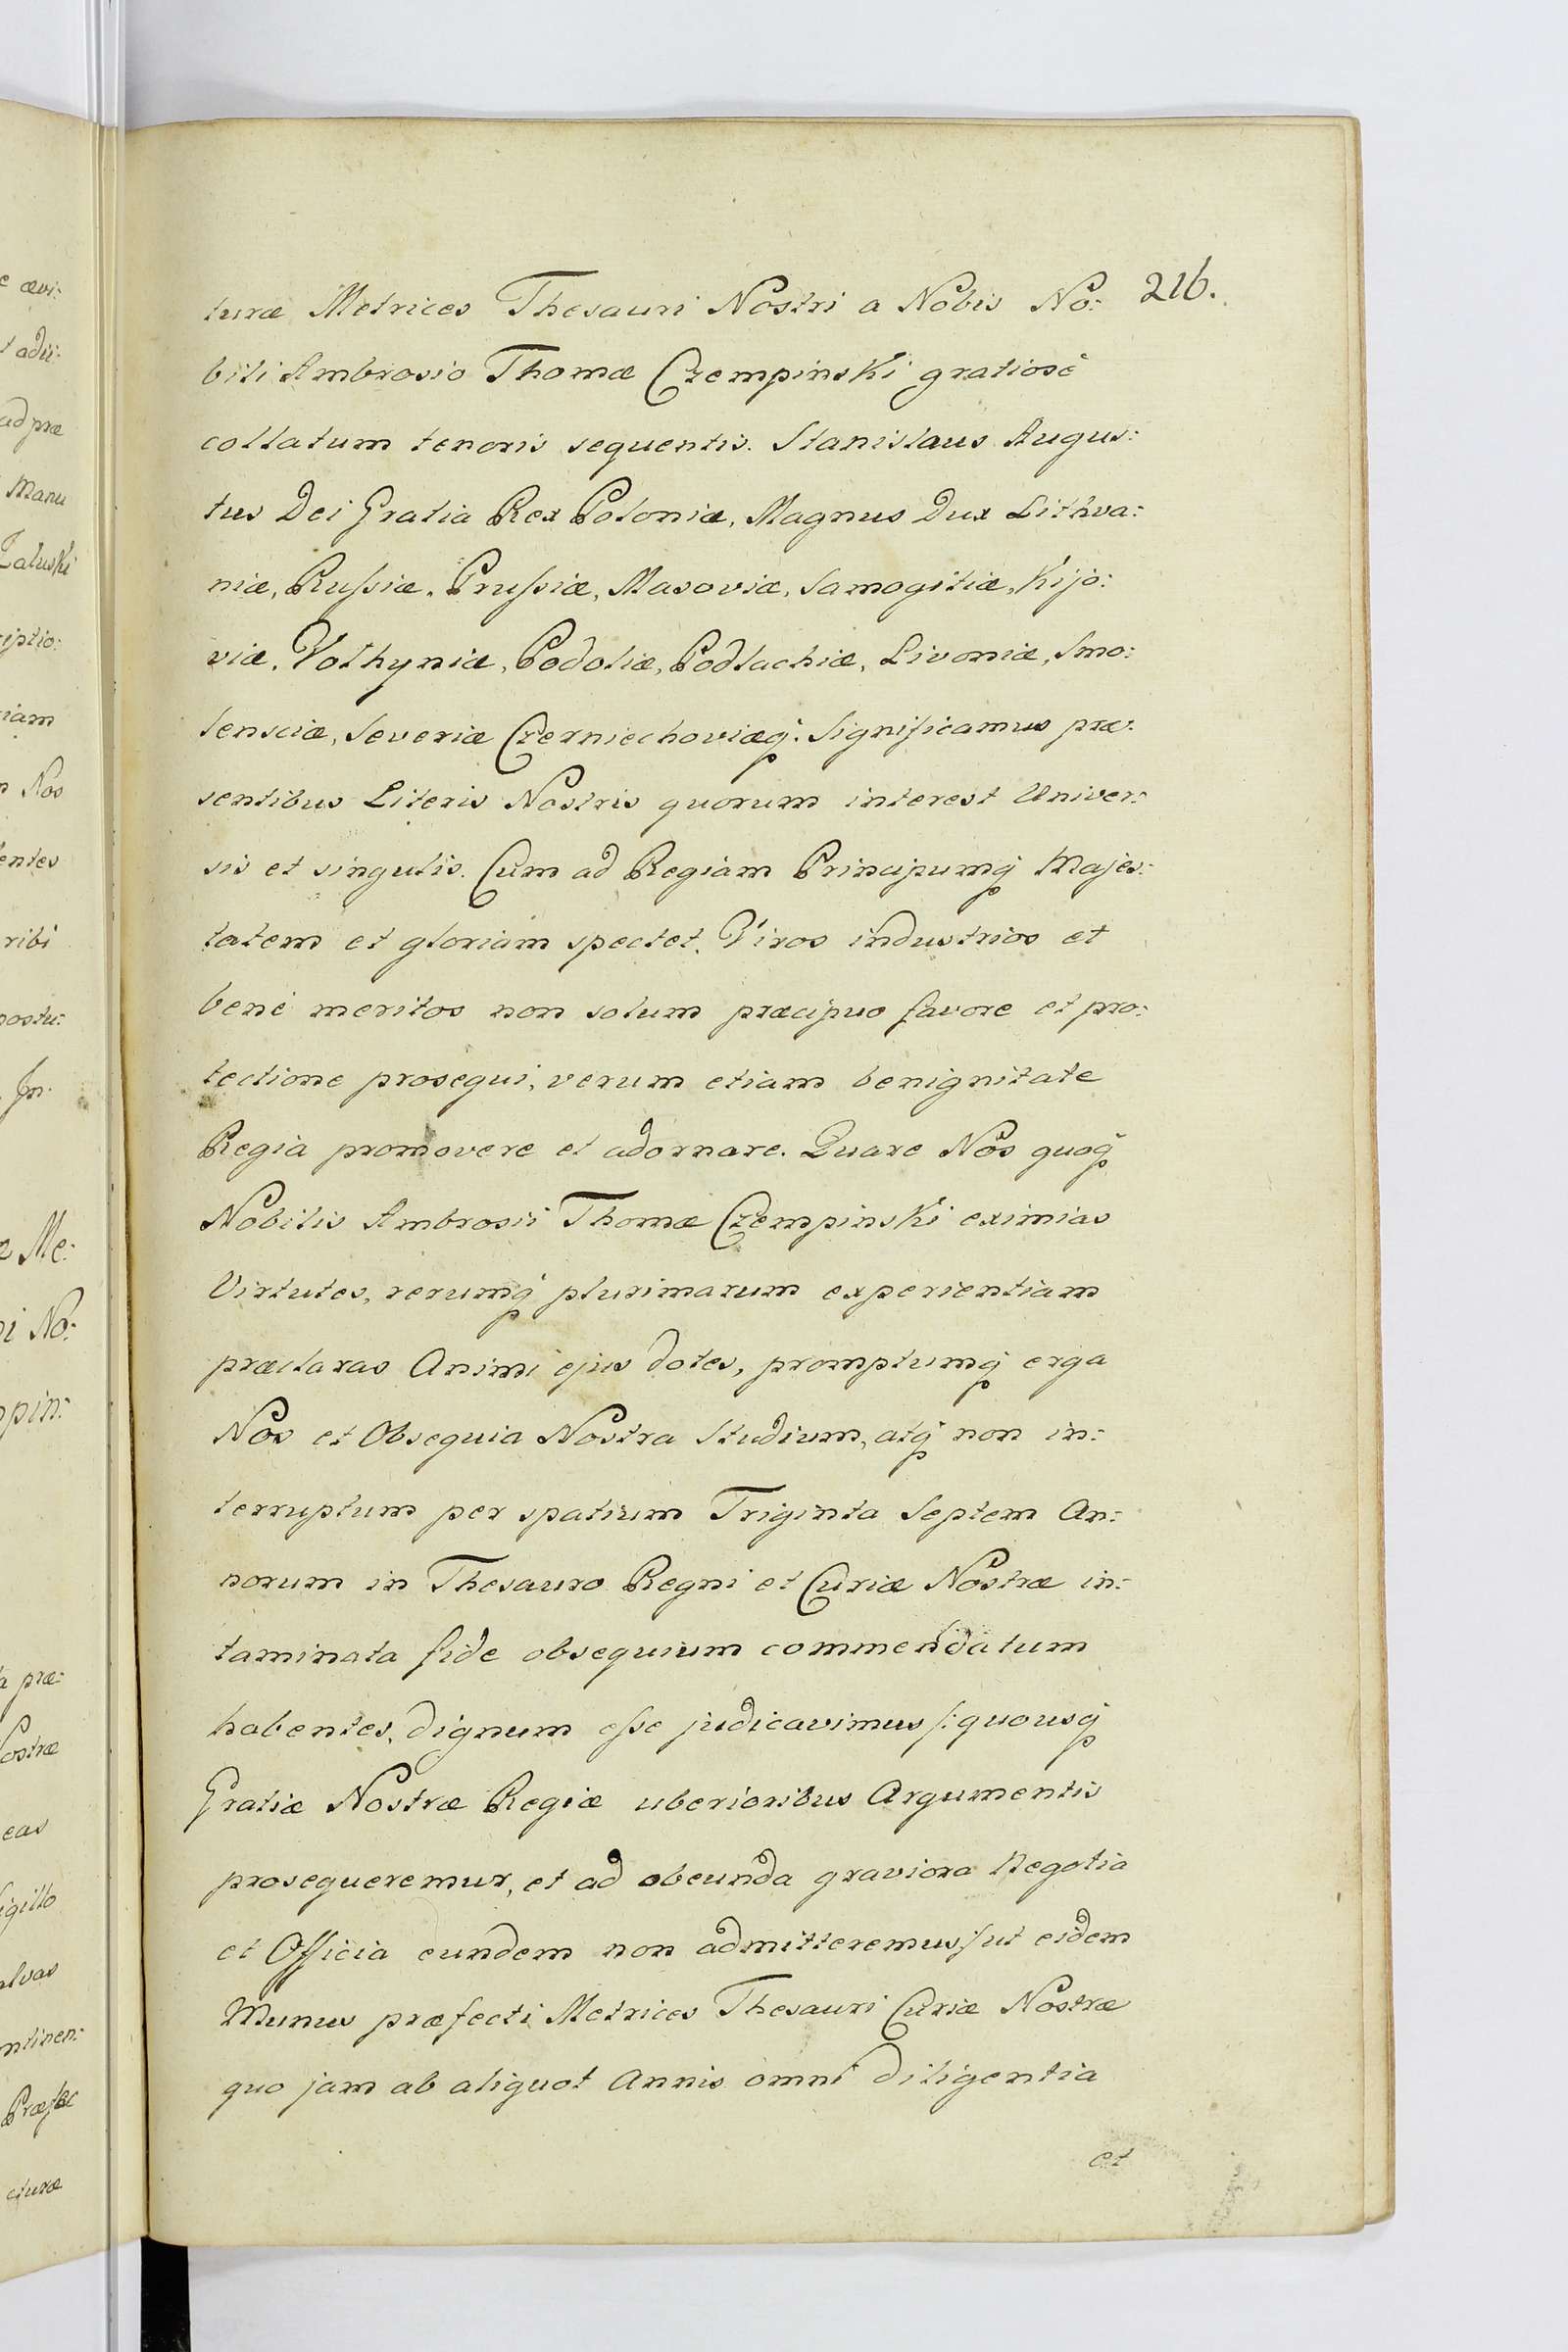 216.
turæ Metrices Thesauri Nostri a Nobis No:
bili Ambrosio Thomæ Czempinski gratiosè
collatum tenoris sequentis. Stanislaus Augus:
tus Dei Gratia Rex Poloniæ, Magnus Dux Lithva:
niæ, Rußiæ, Prußiæ, Masoviæ, Samogitiæ, Kijo:
viæ, Volhyniæ, Podoliæ, Podlachiæ, Livoniæ, Smo:
lensciæ, Severiæ Czerniechoviæq́: Significamus præ:
sentibus Literis Nostris quorum interest Univer:
sis et singulis. Cum ad Regiam Principumq́ Majes:
tatem et gloriam spectet, Viros industrios et
bene meritos non solum præcipuo favore et pro:
tectione prosequi, verum etiam benignitate
Regia promovere et adornare. Quare Nos quoq́
Nobilis Ambrosii Thomæ Czempinski eximias
Virtutes, rerumq́ plurimarum experientiam
præclaras Animi ejus dotes, promptumq́ erga
Nos et Obsequia Nostra Studium, atq́ non in:
terruptum per spatium Triginta Septem An:
norum in Thesauro Regni et Curiæ Nostræ in:
taminata fide obsequium commendatum
habentes, dignum eße judicavimus /: quousq́
Gratiæ Nostræ Regiæ uberioribus Argumentis
prosequeremur, et ad obeunda graviora Negotia
et Officia eundem non admitteremus / ut eidem
Munus præfecti Metrices Thesauri Curiæ Nostræ
quo jam ab aliquot Annis omni diligentia
et
e ævi:
t adii:
ad præ
Manu
Zaluski
iptio:
iam
Nos
entes
ribi
postu:
In:
Me:
i No:
pin:
præ:
ostræ
eas
igillo
alvas
ntinen:
Præfec
cturæ